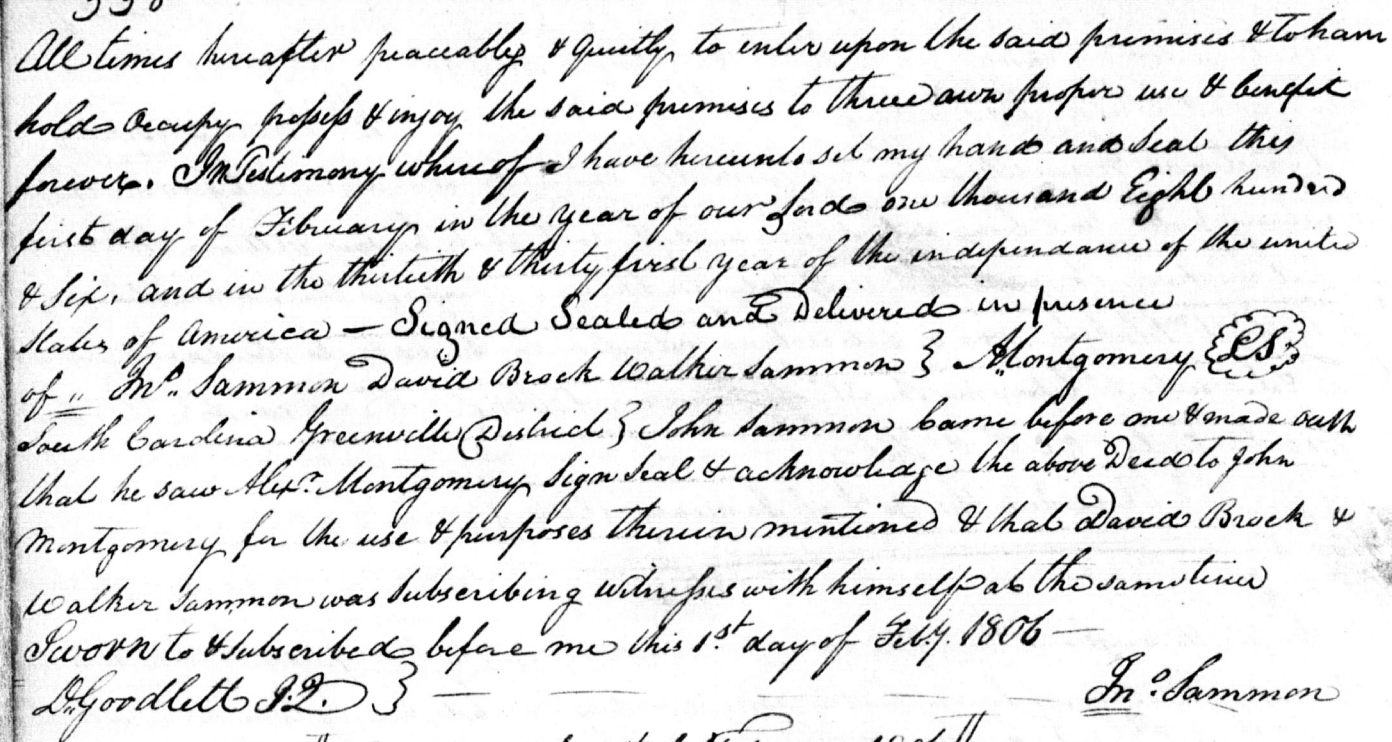 All times hereafter peaceably & quietly to enter upon the said premises & to have
hold occupy possess & injoy the said premises to three own proper use & benefit
forever. In Testimony whereof I have hereunto set my hand and seal this
first day of February in the year of our Lord one thousand Eight hundred
& Six. and in the thirtieth & thirty first year of the independance of the united
States of America — Signed Sealed and Delivered in presence
of " Jno. Sammon David Brock Walker Sammon } A. Montgomery {LS}
South Carolina Greenville District } John Sammon Came before me & made oath
that he saw Alexr. Montgomery Sign Seal & acknowledge the above Deed to John
Montgomery for the use & purposes therein mentioned & that David Brock &
Walker Sammon was Subscribing witnesses with himself at the same time
Sworn to & Subscribed before me this 1st. day of Feby. 1806 —
D. Goodlett J.Q. } — — — — Jno. Sammon